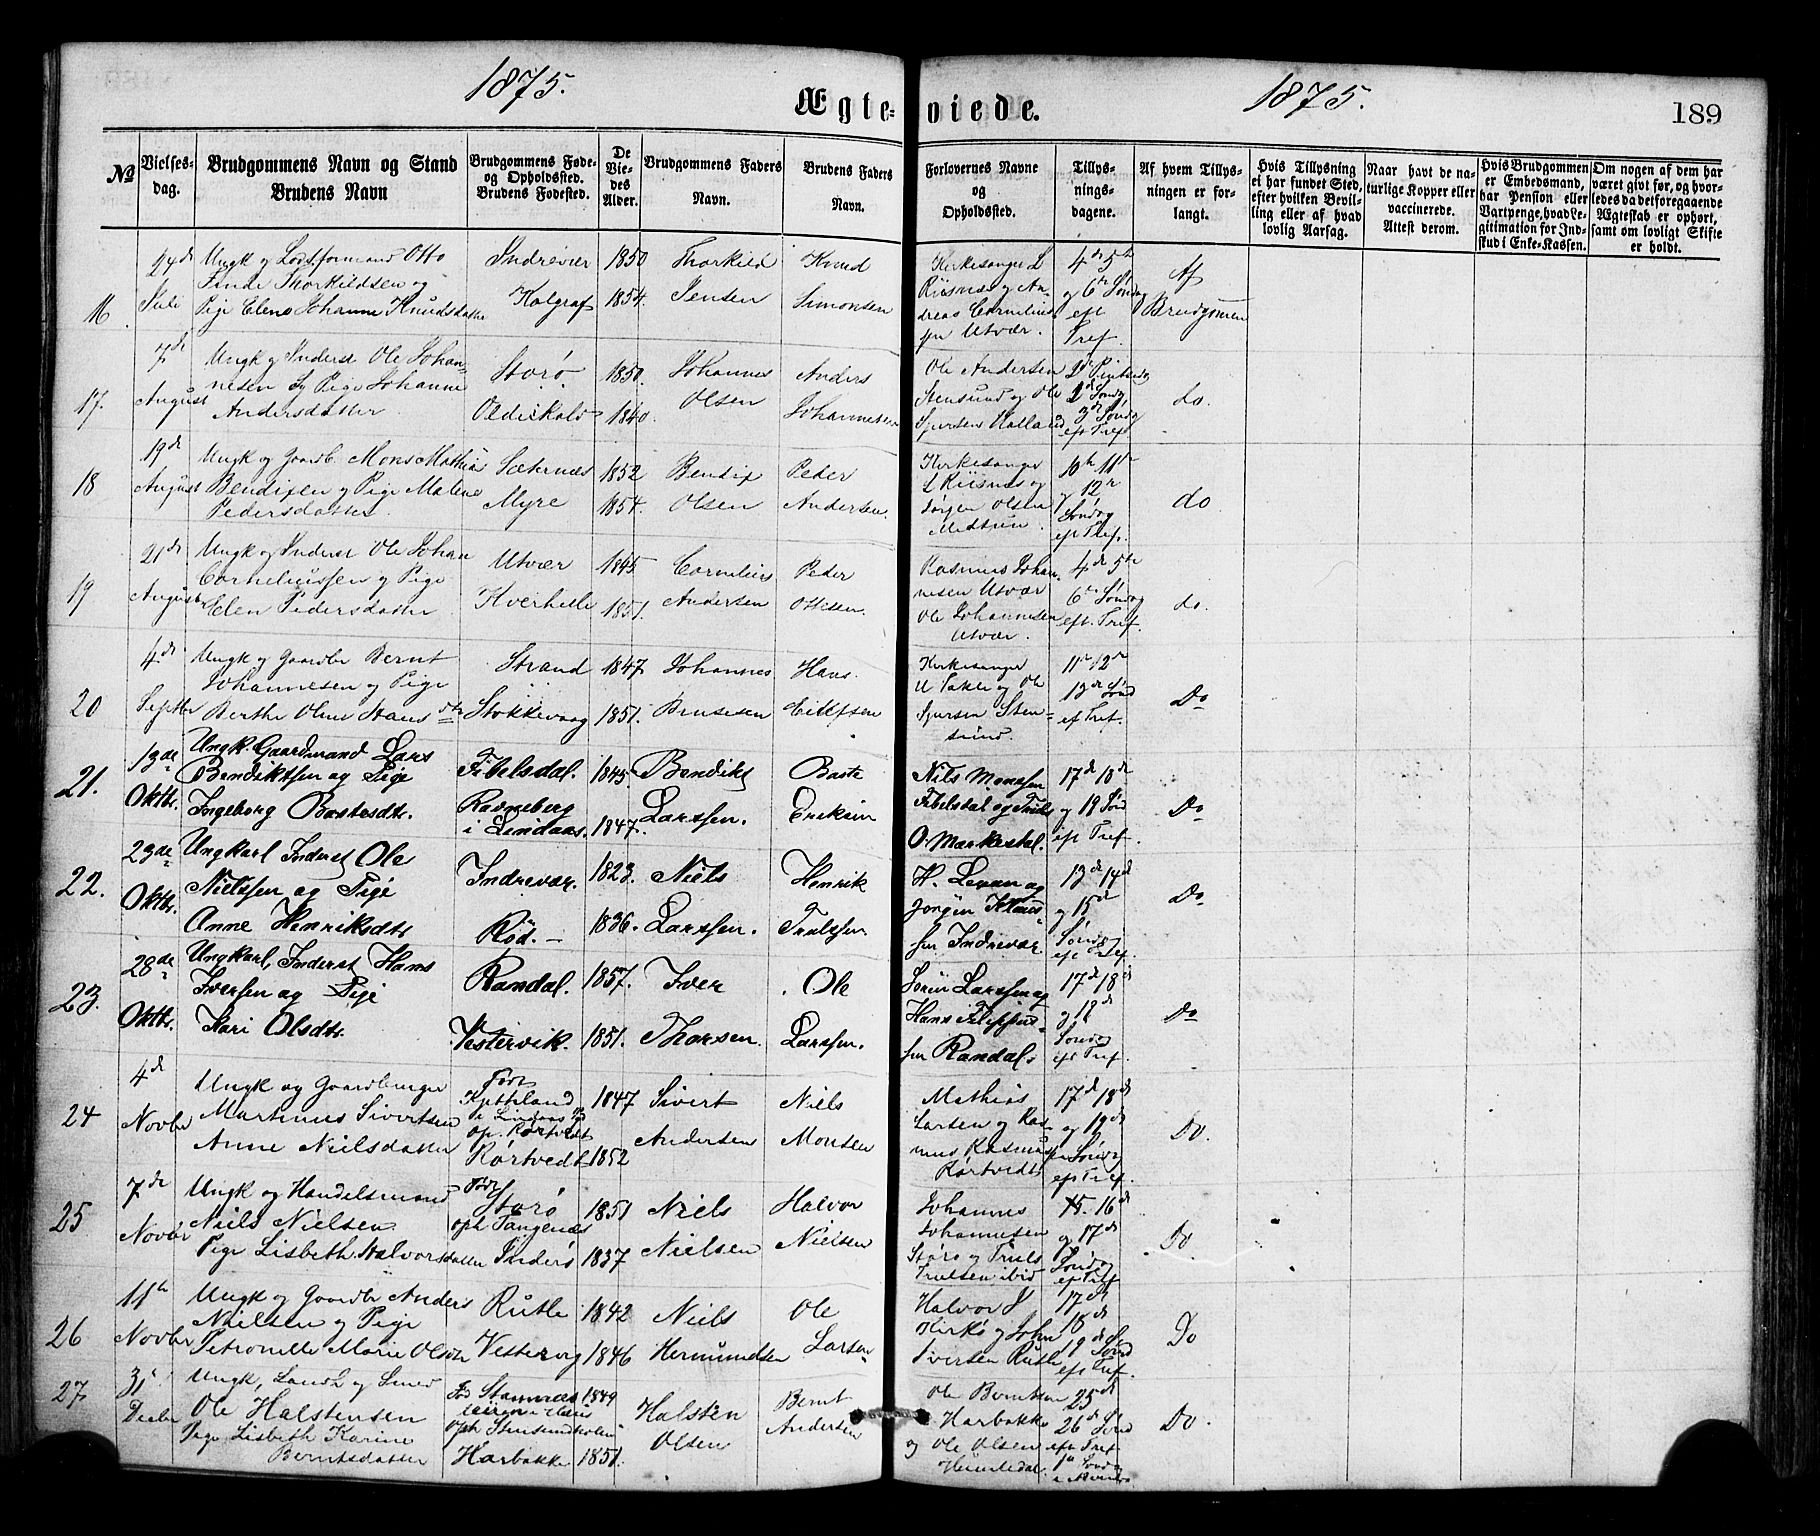 1875.
1875.
189
Ægteviede.
№
Vielses-dag.
Brudgommens Navn og Stand
Brudens Navn
Brudgommens Føde- og Opholdsted.
Brudens Fødested.
De Viedes Alder.
Brudgommens Faders Navn.
Brudens Faders Navn.
Forlovernes Navne og Opholdsted.
Tillysningsdagene.
Af hvem Tillysningen er forlangt.
Hvis Tillysning ei har fundet Sted, efter hvilken Bevilling eller af hvad lovlig Aarsag.
Naar havt de naturlige Kopper eller vaccinerede. Attest derom.
Hvis Brudgommen er Embedsmand, har Pension eller Vartpenge, hvad Legitimation for Indskud i Enke-Kassen.
Om nogen af dem har været givt før, og hvorledes da det foregaaende Ægteskab er ophørt, samt om lovligt Skifte er holdt.
16. 24de Juli
Ungk og Lodsformand Otto
Thorkildsen og
Pige Elene Johanne Knudsdatter
Indrevær 1850
Kolgraf 1854.
Thorkild Jensen
Knud Simonsen
Kirkesanger L
Riisnes og Andreas Cornelius
Utvær.
4de 5te
og 6te Søndag
eft
Tref.
Af Brudgommen
17. 7de August
Ungk og Inderst Ole Johannesen og Pige Johanne
Andersdatter
Storø. 1850.
1840.
Johannes Olsen
Anders Johannesen
Ole Andersen
Stensund og Ole
Sjursen
2d
2d Søndag
3de Sønd
eft Tref
do.
18 19de August
Ungk og Gaardb. Mons Mathias
Bendixen og Pige Malene
Pedersdatter.
Sæternes 1852
Myre 1854.
Bendix Olsen
Peder Andersen.
Kirkesanger
L Riisnes og
Jørgen Olsen
10de 11te
og 12te
Søndag
ef Tref.
do
19 21de August
Ungk og Inderst Ole Johan
Corneliussen og Pige
Elen Pedersdatter
Utvær 1845
Kverhelle 1851.
Cornelius Andersen
Peder Ottesen.
Rasmus Johannesen Utvær
Ole Johannesen
Utvær.
4de 5te
6te Søndag
eft. Tref.
do.
20 4de Septbr
Ungk og Gaardbr Bernt
Johannesen og Pige
Berthe Oline Hansdtr
Strand 1847.
Stokkevaag 1851.
Johannes
Hans
Kirkesanger
og Ole
Sjursen Stensund.
11te 12te
13de Sønd
ef Tref.
Do
21. 13de Oktbr.
Ungk. Gaardmand Lars
Bendiktsen og Pige
Ingeborg Bastesdtr.
Fibelsdal. 1845.
Ravneberg
i Lindaas. 1847.
Bendikt Larssen.
Baste Eriksen
Nils Monssen
Fibelsdal og Truls
O. Markestal.
17de 18de
og 19 Sønd
eft Tref.
Do
22. 23de Oktbr.
Ungkarl Inderst Ole
Nielssen og Pige
Anne Henriksdtr
Indrevær. 1823.
Röd. 1836.
Niels Larssen.
Henrik Trulssen.
H. Levan og
Jörgen Klaussen Indrevær
13de 14de
og 15de
Søndag
ef Tref.
Do
23. 28de Oktbr.
Ungkarl, Inderst Hans
Iversen og Pige
Kari Olsdtr.
Randal. 1857.
Vestervik. 1851.
Iver Thorsen.
Ole Larssen.
Sörin Larssen og
Hans Filippussen Randal.
17de 18de
og 18de
Søndag
eft Tref.
Do
24 4de Novbr
Ungk og Gaardbruger
Martinus Sivertsen
Anne Nielsdatter
Født
i Lindaas
op. Rørtvedt 1847
Rørtvedt 1852
Sivert Andersen
Niels Monsen
Mathias
Larsen og Rasmus Rasmussen
Rørtvedt
17de 18de
og 19de
Søndag
ef Tref.
Do.
25 7de Novbr
Ungk og Handelsmand
Niels Nielsen
Pige Lisbeth Halvorsdatter
Født
Storø 1851
oph Tangenæs
Inderø 1837
Niels Nielsen
Halvor Nielsen
Johannes
Johannesen
Storø og Truls
Trulsen ibid
15. 16de
og 17de
Søndag
ef Tref
Do
26 11te Novbr
Ungk og Gaardbr Anders
Nielsen og Pige
Petronelle Marie Olsdtr
Rutle 1842
Vestervig 1846
Niels Hermundsen
Ole Larsen
Halvor J
Kirkø og John
Iversen Rutle
17de
18de
19de Sønd
eft Tref.
Do
27 31te Decbr
Ungk, Landh og Smed
Ole Halstensen
Pige Lisbeth Karine
Berntsdatter
Fød Stamnæs 1849
oph Stensundholm
Harbakke 1851.
Halsten Olsen
Bernt Andersen
Ole Berntsen
Harbakke
og Ole Olsen
Humledal.
25de
26de Sønd
eft Tref
1ste Sønd
i Advent
Do.